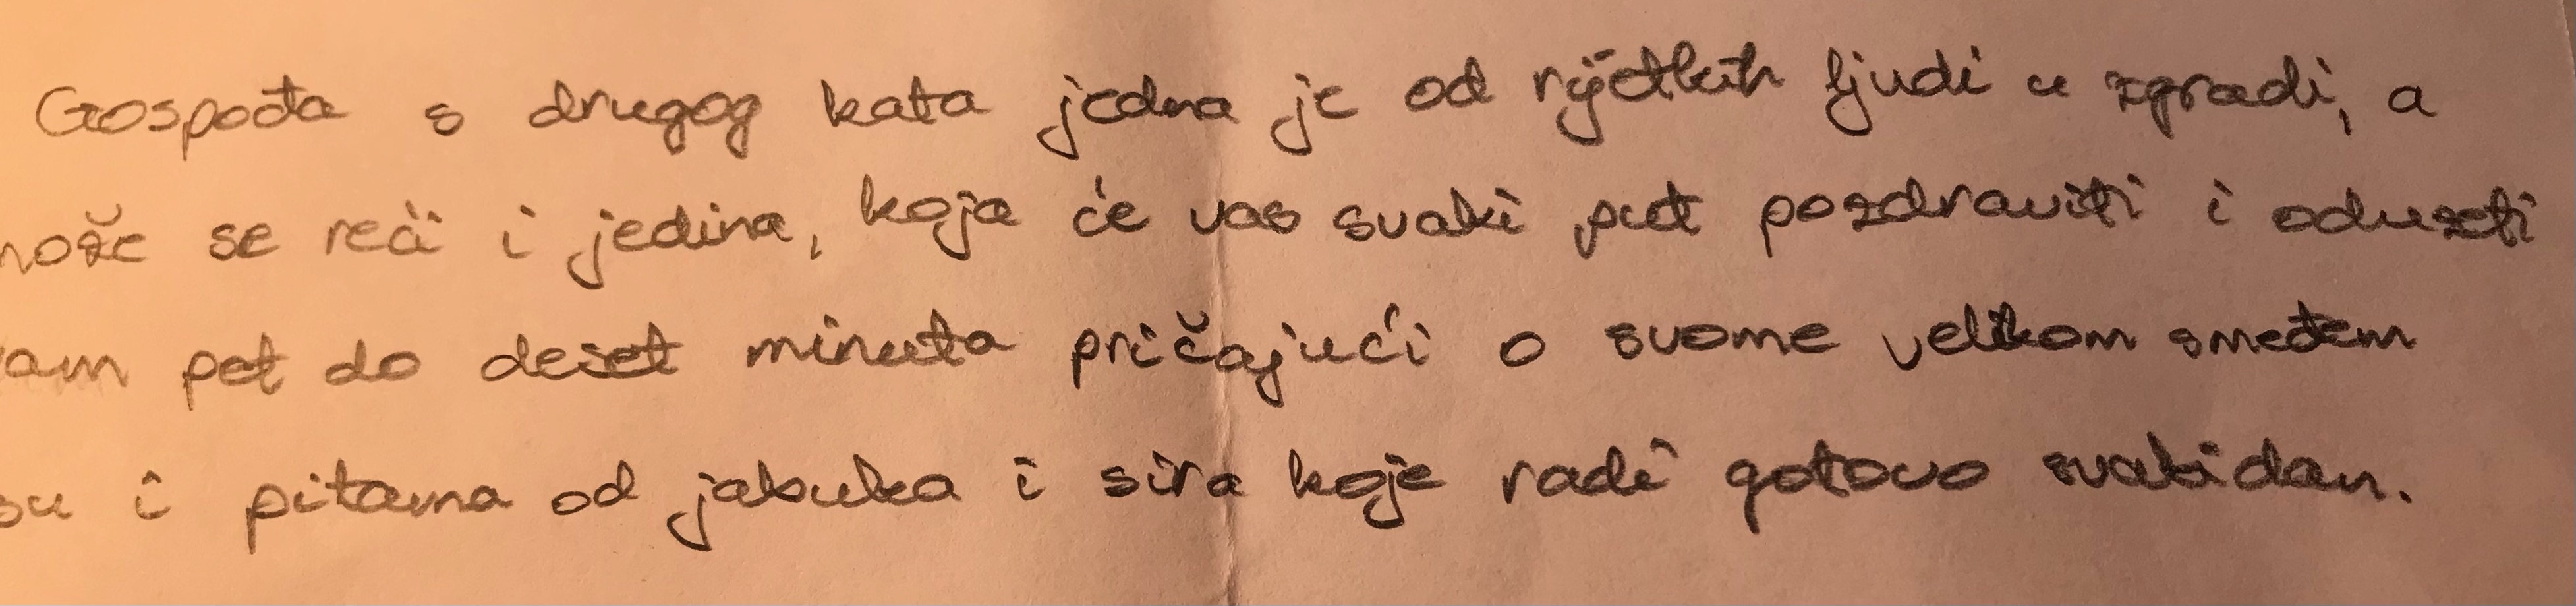 Gospođa s drugog kata jedna je od rijetkih ljudi u zgradi, a
može se reći i jedina, koja će vas svaki put pozdraviti i oduzeti
vam pet do deset minuta pričajući o svome velikom smeđem
su i pitama od jabuka i sira koje radi gotovo svakidan.